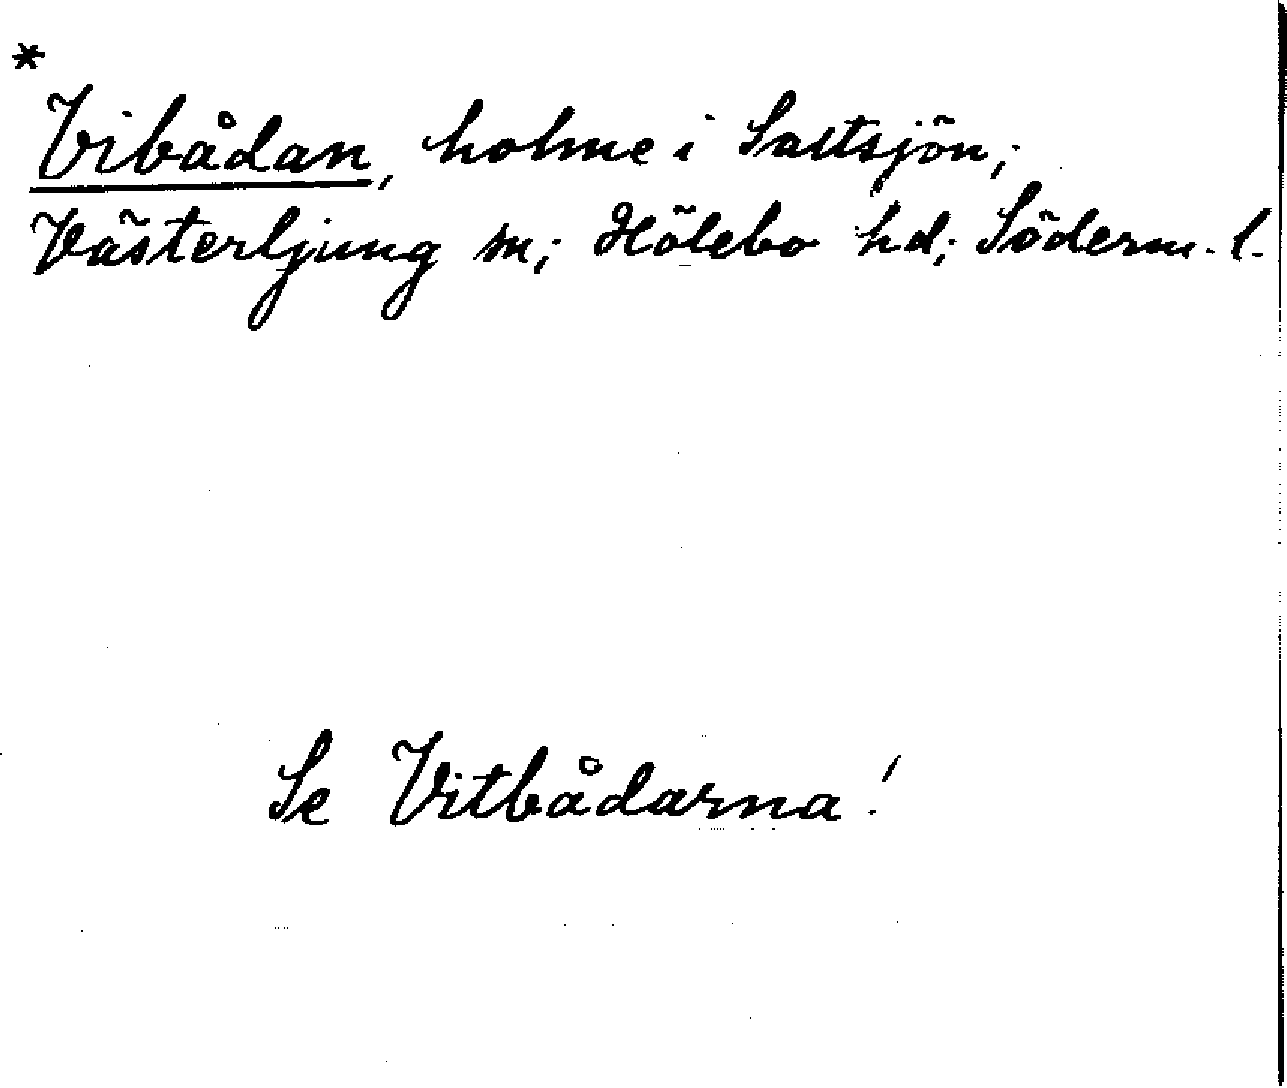 *
Vibådan, holme i Saltsjön;
Västerljung sn; Hölebo hd; Söderm. l.
Se Vitbådarna!